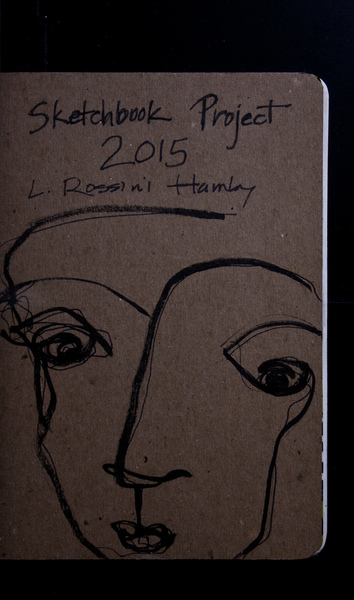 Sketchbook Project
2015
L. Rossini Hamby